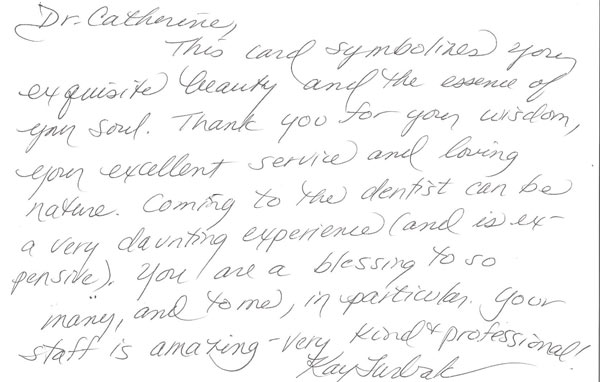 Dr. Catherine,
This card symbolizes your
exquisite beauty and the essence of
your soul. Thank you for your wisdom,
your excellent service and loving
nature. Coming to the dentist can be
a very daunting experience (and is ex-
pensive). You are a blessing to so
many, and to me, in particular. Your
staff is amazing - very kind & professional!
Kay